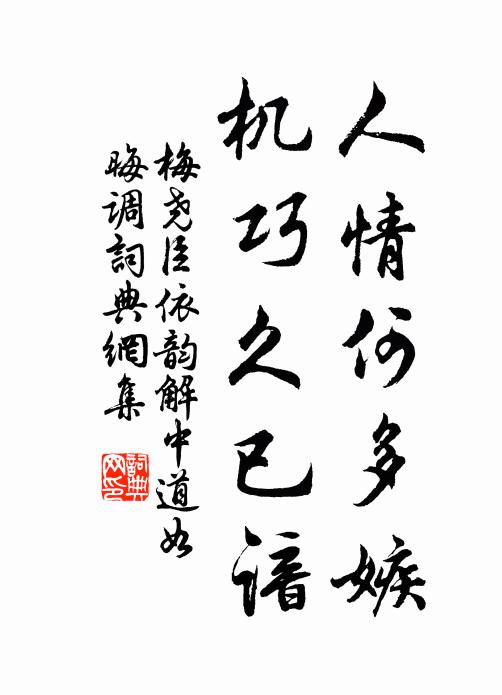 人情何多嫉
机巧久已谙
梅尧臣依韵解中道如
晦调詞典網集
詞典网印